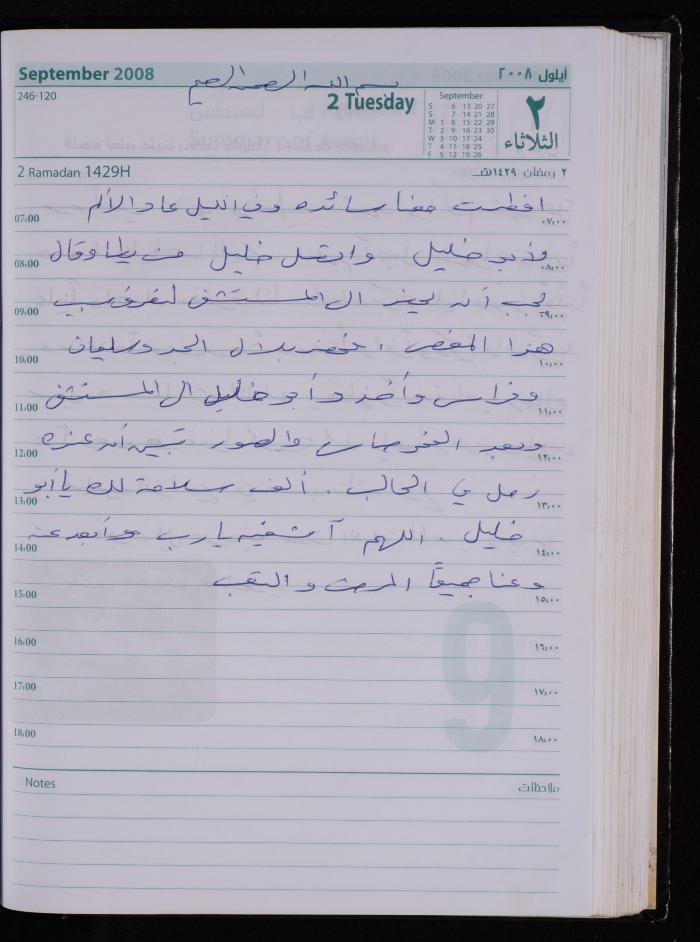 September 2008
أيلول ٢٠٠٨
بسم الله الرحمن الرحيم
246-120
2 Tuesday
September
S 6 13 20 27
S 7 14 21 28
M 1 8 15 22 29
T 2 9 16 23 30
W 3 10 17 24
T 4 11 18 25
F 5 12 19 26
٢
الثلاثاء
2 Ramadan 1429H
٢ رمضان ١٤٢٩هـ
افطرت معنا سائده وفي الليل عاد الألم
07:00 ٠٧:٠٠
لأبو خليل واتصل خليل من يطا وقال
08:00 ٠٨:٠٠
يجب أن يحضر الى المستشفى لنعرف سبب
09:00 ٠٩:٠٠
هذا المغص، فحضر بلال الحد وسليمان
10:00 ١٠:٠٠
وفراس وأخذوا أبو خليل الى المستشفى
11:00 ١١:٠٠
وبعد الفحوصات والصور تبين أن عنده
12:00 ١٢:٠٠
رمل في الحالب. ألف سلامة لك يا أبو
13:00 ١٣:٠٠
خليل. اللهم آمين اشفيه يارب وأبعد عنه
14:00 ١٤:٠٠
وعنا جميعاً المرض والتعب
15:00 ١٥:٠٠
16:00 ١٦:٠٠
17:00 ١٧:٠٠
18:00 ١٨:٠٠
9
Notes
ملاحظات